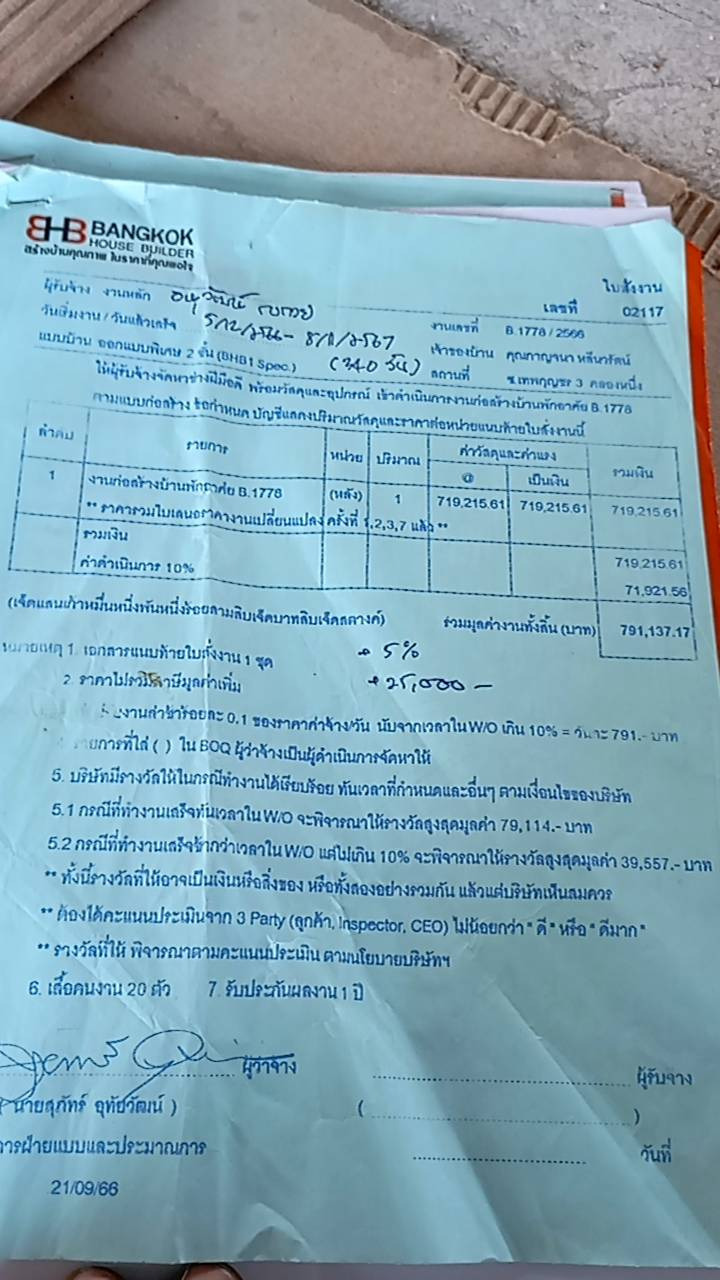 BHB BANGKOK
HOUSE BUILDER
สร้างบ้านคุณภาพ ในราคาที่คุณพอใจ
ใบสั่งงาน
ผู้รับจ้าง งานหลัก อนุวัฒน์
เลขที่ 02117
วันเริ่มงาน / วันแล้วเสร็จ 5/12/2566 - 8/11/2567
งานเลขที่ B.1778 / 2566
แบบบ้าน ออกแบบพิเศษ 2 ชั้น (BHB1 Spec.) (340 วัน)
เจ้าของบ้าน คุณกาญจนา
สถานที่ ซ.เทพกุญชร 3 คลองหนึ่ง
ให้ผู้รับจ้างจัดหาช่างฝีมือดี พร้อมวัสดุและอุปกรณ์ เข้าดำเนินการงานก่อสร้างบ้านพักอาศัย B.1778
ตามแบบก่อสร้าง ข้อกำหนด บัญชีแสดงปริมาณวัสดุและราคาต่อหน่วยแนบท้ายใบสั่งงานนี้
ลำดับ รายการ หน่วย ปริมาณ ค่าวัสดุและค่าแรง รวมเงิน
@ เป็นเงิน
1 งานก่อสร้างบ้านพักอาศัย B.1778 (หลัง) 1 719,215.61 719,215.61 719,215.61
** ราคารวมใบเสนอราคางานเปลี่ยนแปลง ครั้งที่ 1,2,3,7 แล้ว **
รวมเงิน 719,215.61
ค่าดำเนินการ 10% 71,921.56
(เจ็ดแสนเก้าหมื่นหนึ่งพันหนึ่งร้อยสามสิบเจ็ดบาทสิบเจ็ดสตางค์) รวมมูลค่างานทั้งสิ้น (บาท) 791,137.17
หมายเหตุ 1. เอกสารแนบท้ายใบสั่งงาน 1 ชุด + 5%
2. ราคาไม่รวมภาษีมูลค่าเพิ่ม + 25,000 -
งานล่าช้าร้อยละ 0.1 ของราคาค่าจ้าง/วัน นับจากเวลาใน W/O เกิน 10% = วันละ 791.- บาท
รายการที่ใส่ ( ) ใน BOQ ผู้ว่าจ้างเป็นผู้ดำเนินการจัดหาให้
5. บริษัทมีรางวัลให้ในกรณีทำงานได้เรียบร้อย ทันเวลาที่กำหนดและอื่นๆ ตามเงื่อนไขของบริษัท
5.1 กรณีที่ทำงานเสร็จทันเวลาใน W/O จะพิจารณาให้รางวัลสูงสุดมูลค่า 79,114.- บาท
5.2 กรณีที่ทำงานเสร็จช้ากว่าเวลาใน W/O แต่ไม่เกิน 10% จะพิจารณาให้รางวัลสูงสุดมูลค่า 39,557.- บาท
** ทั้งนี้รางวัลที่ให้อาจเป็นเงินหรือสิ่งของ หรือทั้งสองอย่างรวมกัน แล้วแต่บริษัทเห็นสมควร
** ต้องได้คะแนนประเมินจาก 3 Party (ลูกค้า, Inspector, CEO) ไม่น้อยกว่า " ดี " หรือ " ดีมาก "
** รางวัลที่ให้ พิจารณาตามคะแนนประเมิน ตามนโยบายบริษัทฯ
6. เสื้อคนงาน 20 ตัว 7. รับประกันผลงาน 1 ปี
ผู้ว่าจ้าง ผู้รับจ้าง
( นายสุภัทร์ อุทัยวัฒน์ ) ( )
การฝ่ายแบบและประมาณการ วันที่
21/09/66